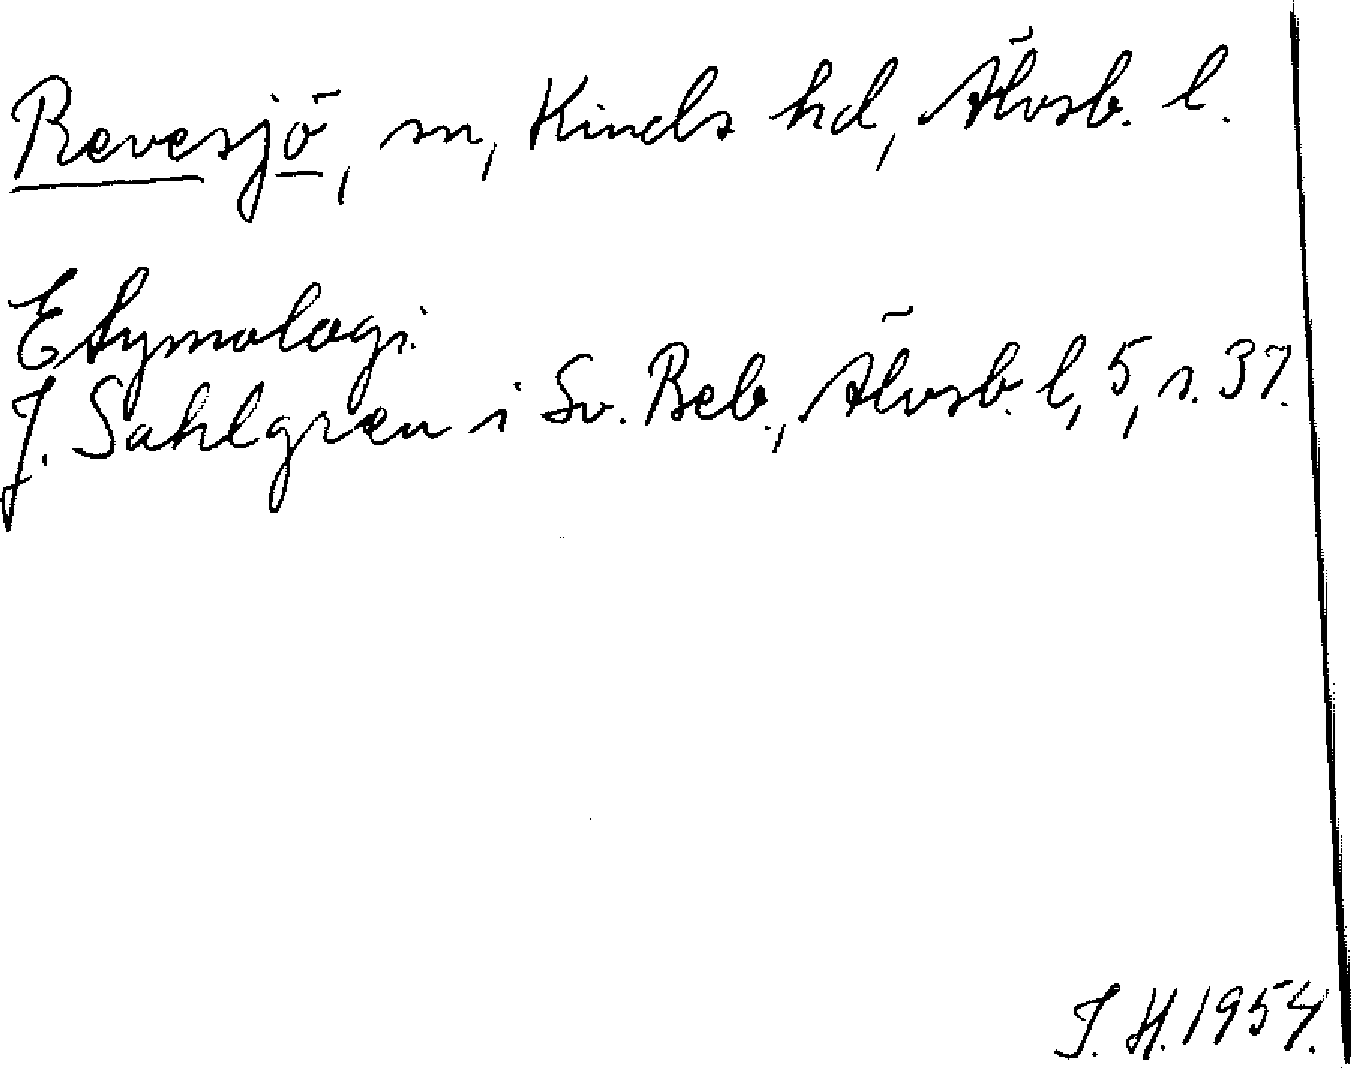 Revesjö, sn, Kinds hd, Älvsb. l.
Etymologi.
J. Sahlgren i Sv. Beb., Älvsb. l, 5, s. 37.
I. H. 1954.